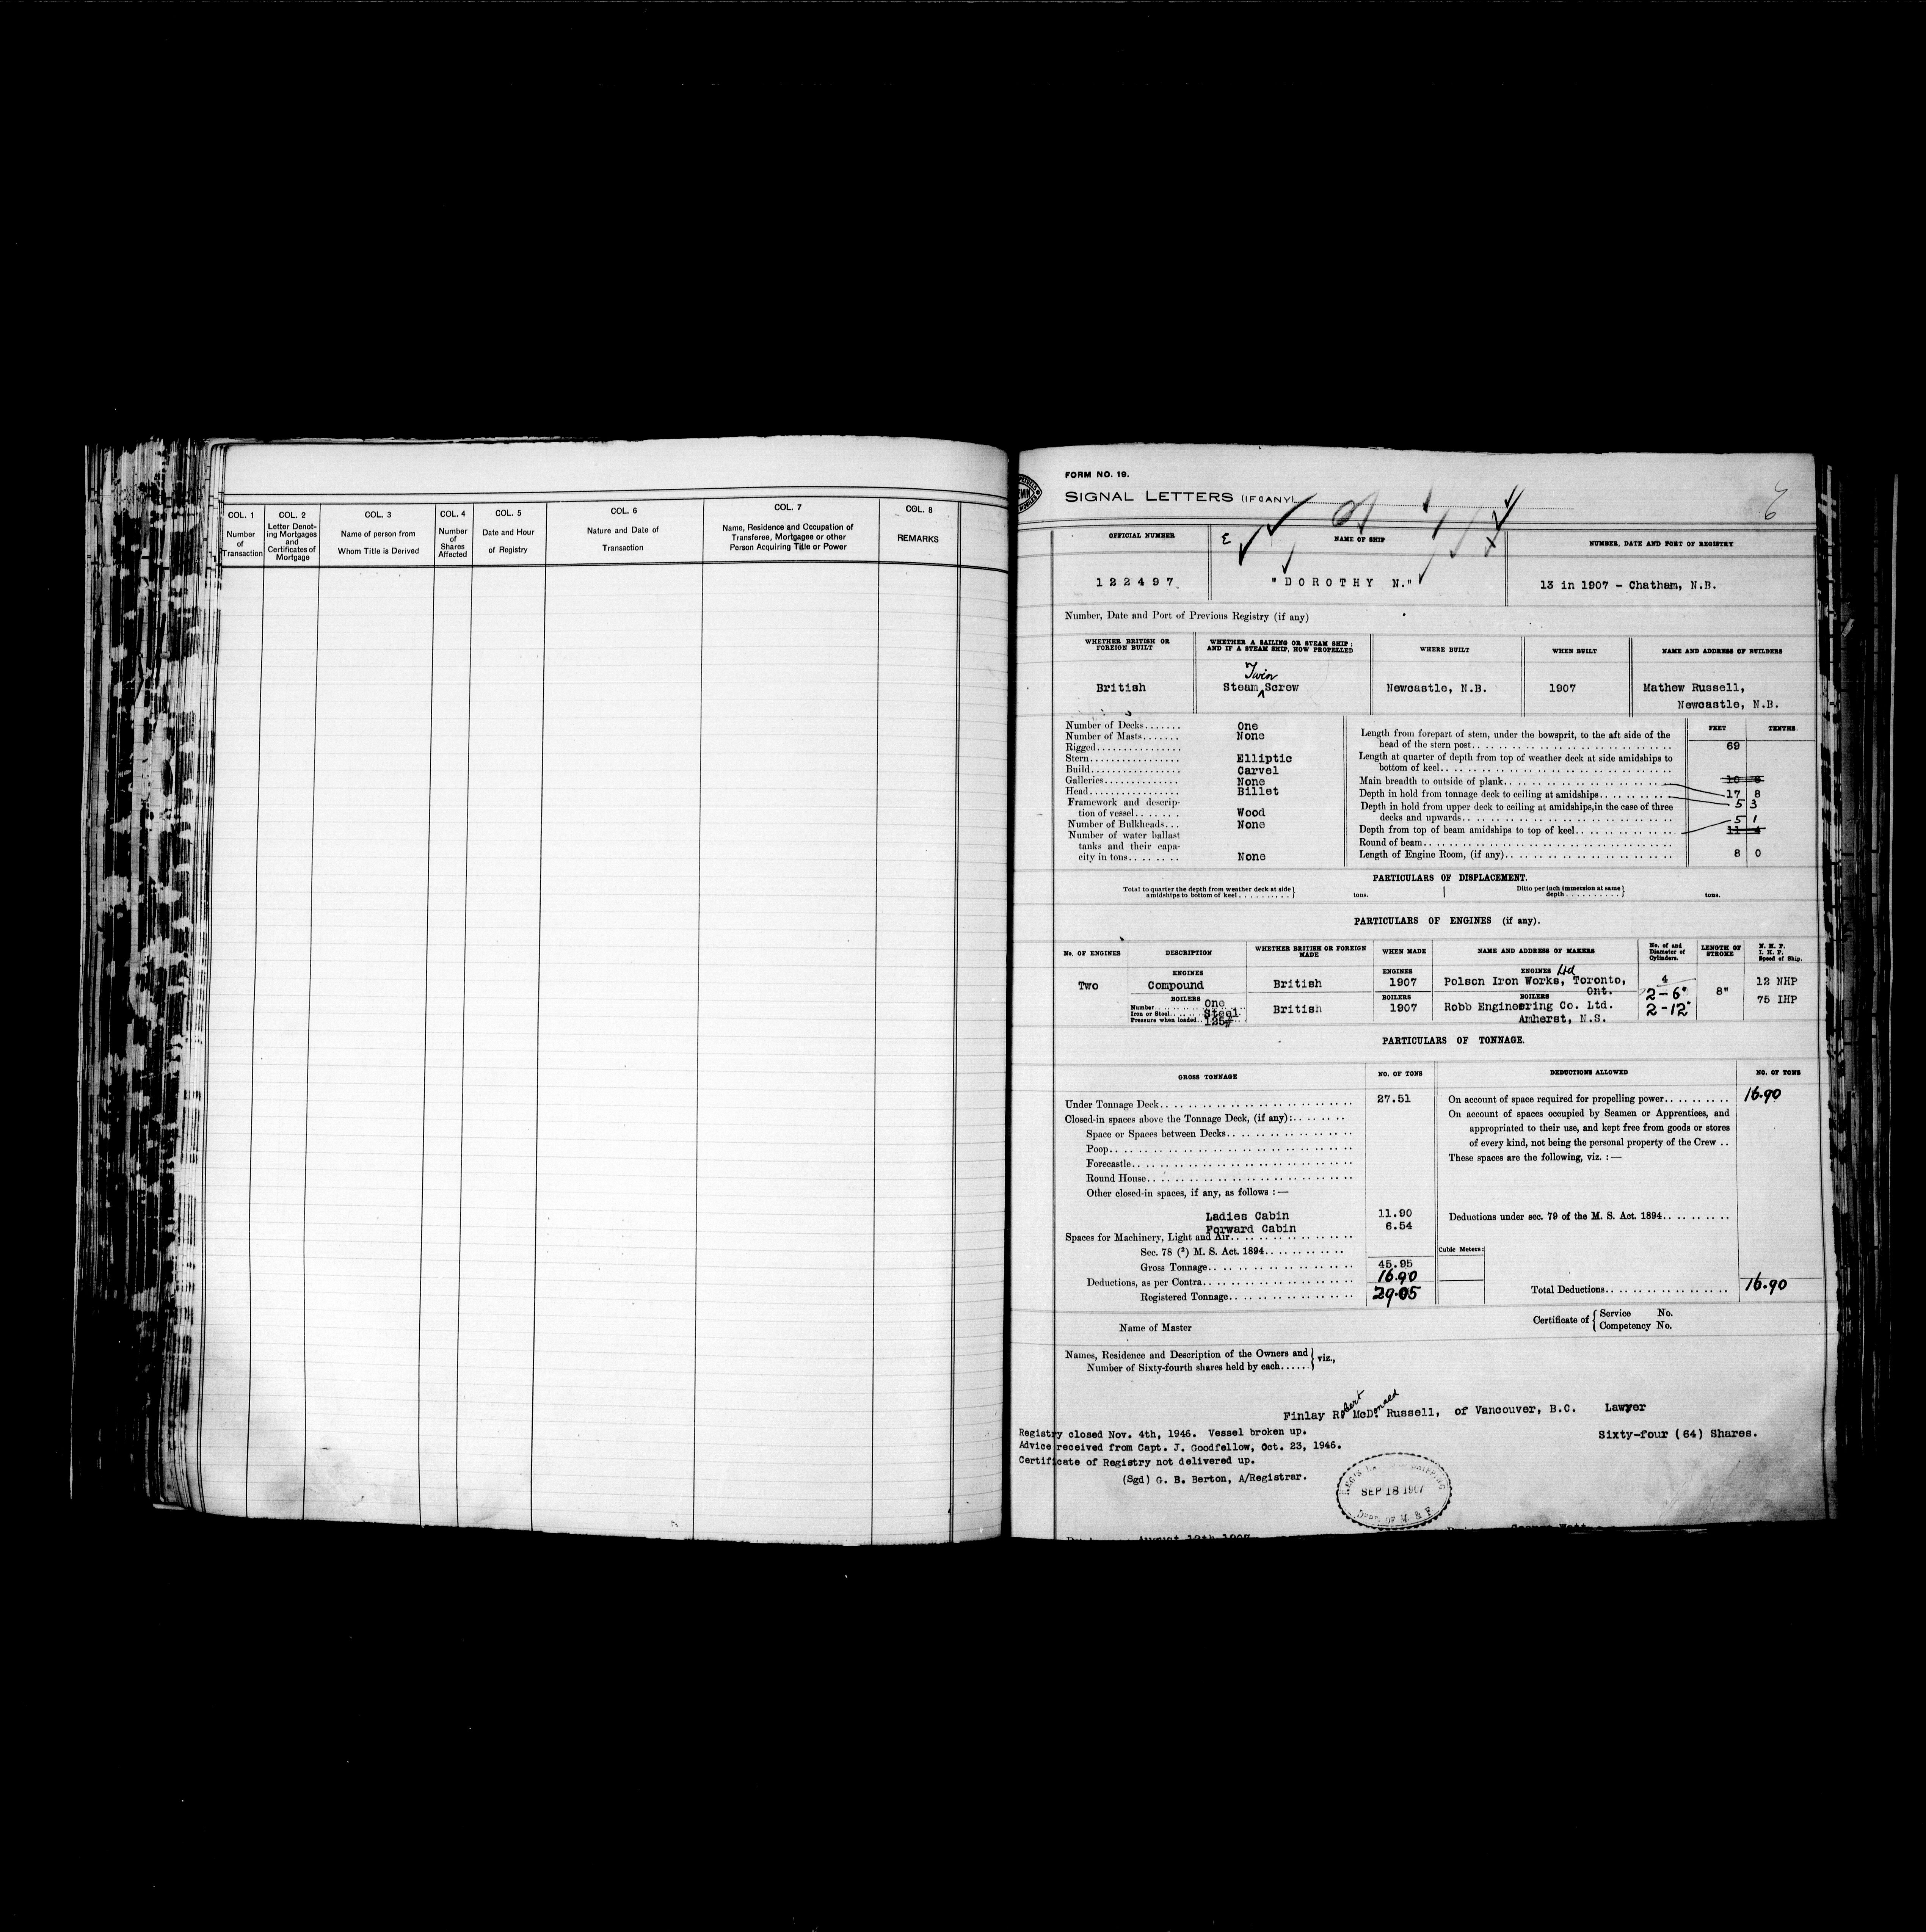 COL. 1
Number
of
Transaction
COL. 2
Letter Denot-
ing Mortgages
and
Certificates of
Mortgage
COL. 3
Name of person from
Whom Title is Derived
COL. 4
Number
of
Shares
Affected
COL. 5
Date and Hour
of Registry
COL. 6
Nature and Date of
Transaction
COL. 7
Name, Residence and Occupation of
Transferee, Mortgagee or other
Person Acquiring Title or Power
COL. 8
REMARKS
FORM NO. 19.
SIGNAL LETTERS (IF ANY)
6
OFFICIAL NUMBER
NAME OF SHIP
NUMBER, DATE AND PORT OF REGISTRY
122497.
"DOROTHY N."
13 in 1907 - Chatham, N.B.
Number, Date and Port of Previous Registry (if any)
WHETHER BRITISH OR
FOREIGN BUILT
WHETHER A SAILING OR STEAM SHIP;
AND IF A STEAM SHIP, HOW PROPELLED
WHERE BUILT
WHEN BUILT
NAME AND ADDRESS OF BUILDERS
British
Twin
Steam Screw
Newcastle, N.B.
1907
Mathew Russell,
Newcastle, N.B.
Number of Decks....... One
Number of Masts....... None
Rigged................
Stern................. Elliptic
Build................. Carvel
Galleries.............. None
Head................. Billet
Framework and descrip-
tion of vessel....... Wood
Number of Bulkheads... None
Number of water ballast
tanks and their capa-
city in tons......... None
FEET TENTHS
Length from forepart of stem, under the bowsprit, to the aft side of the
head of the stern post.......... 69
Length at quarter of depth from top of weather deck at side amidships to
bottom of keel..........
Main breadth to outside of plank.......... 17 8
Depth in hold from tonnage deck to ceiling at amidships.......... 5 3
Depth in hold from upper deck to ceiling at amidships, in the case of three
decks and upwards..........
Depth from top of beam amidships to top of keel.......... 5 1
Round of beam..........
Length of Engine Room, (if any).......... 8 0
PARTICULARS OF DISPLACEMENT.
Total to quarter the depth from weather deck at side
amidships to bottom of keel.......... tons.
Ditto per inch immersion at same
depth.......... tons.
PARTICULARS OF ENGINES (if any).
No. OF ENGINES
DESCRIPTION
WHETHER BRITISH OR FOREIGN
MADE
WHEN MADE
NAME AND ADDRESS OF MAKERS
No. of and
Diameter of
Cylinders.
LENGTH OF
STROKE
N. H. P.
I. H. P.
Speed of Ship.
Two
ENGINES
Compound
British
ENGINES
1907
ENGINES Ltd
Polson Iron Works, Toronto,
Ont.
4
2-6"
2-12"
8"
12 NHP
75 IHP
BOILERS
Number.......... One
Iron or Steel....... Steel
Pressure when loaded.. 125#
British
BOILERS
1907
BOILERS
Robb Engineering Co. Ltd.
Amherst, N.S.
PARTICULARS OF TONNAGE.
GROSS TONNAGE
NO. OF TONS
DEDUCTIONS ALLOWED
NO. OF TONS
Under Tonnage Deck.......... 27.51
Closed-in spaces above the Tonnage Deck, (if any):........
Space or Spaces between Decks..........
Poop..........
Forecastle..........
Round House..........
Other closed-in spaces, if any, as follows :—
Ladies Cabin 11.90
Forward Cabin 6.54
Spaces for Machinery, Light and Air..........
Sec. 78 (2) M. S. Act. 1894..........
Gross Tonnage.......... 45.95
Deductions, as per Contra.......... 16.90
Registered Tonnage.......... 29.05
On account of space required for propelling power.......... 16.90
On account of spaces occupied by Seamen or Apprentices, and
appropriated to their use, and kept free from goods or stores
of every kind, not being the personal property of the Crew ..
These spaces are the following, viz. :—
Deductions under sec. 79 of the M. S. Act. 1894..........
Cubic Meters:
Total Deductions.......... 16.90
Name of Master
Certificate of { Service No.
Competency No.
Names, Residence and Description of the Owners and
Number of Sixty-fourth shares held by each...... } viz.,
Finlay Robert McDonald Russell, of Vancouver, B.C. Lawyer
Sixty-four (64) Shares.
Registry closed Nov. 4th, 1946. Vessel broken up.
Advice received from Capt. J. Goodfellow, Oct. 23, 1946.
Certificate of Registry not delivered up.
(Sgd) G. B. Berton, A/Registrar.
SEP 18 1907
DEPT. OF M. & F.